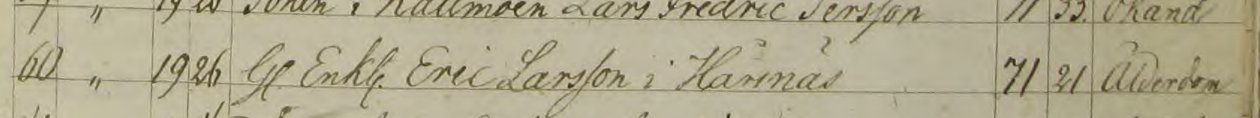 " 19 26 Sonen i Kallmoen Lars Fredric Persson 11 33. Okänd
60 " 19 26 Gl. Enkl. Eric Larsson i Härnäs 71 21 Ålderdom